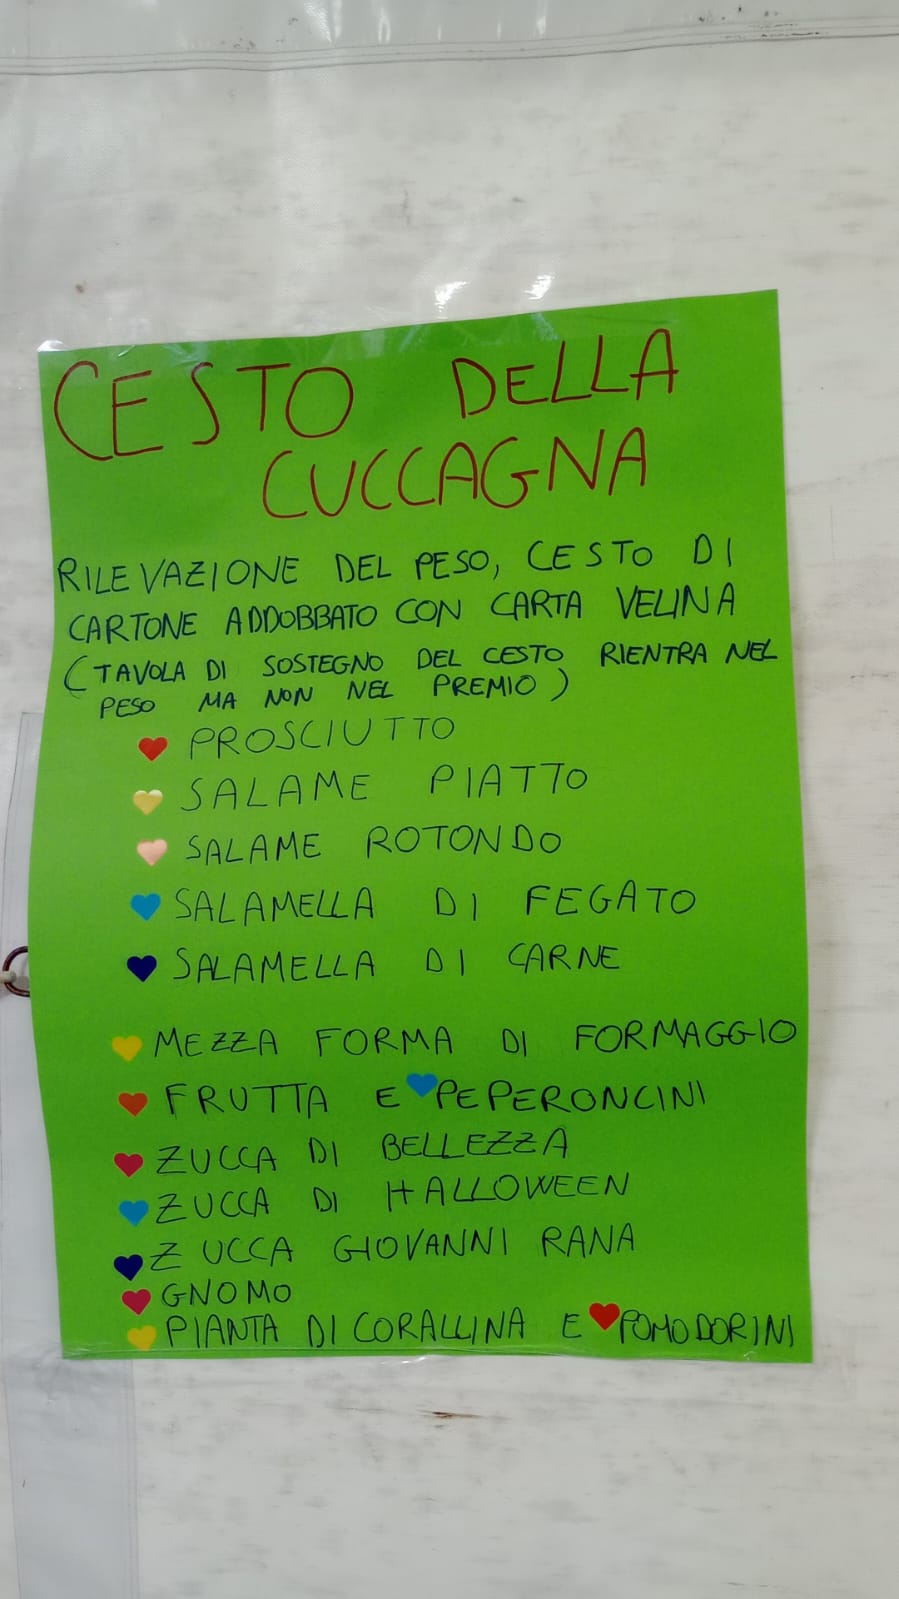 CESTO DELLA
CUCCAGNA
RILEVAZIONE DEL PESO, CESTO DI
CARTONE ADDOBBATO CON CARTA VELINA
(TAVOLA DI SOSTEGNO DEL CESTO RIENTRA NEL
PESO MA NON NEL PREMIO)
PROSCIUTTO
SALAME PIATTO
SALAME ROTONDO
SALAMELLA DI FEGATO
SALAMELLA DI CARNE
MEZZA FORMA DI FORMAGGIO
FRUTTA E PEPERONCINI
ZUCCA DI BELLEZZA
ZUCCA DI HALLOWEEN
ZUCCA GIOVANNI RANA
GNOMO
PIANTA DI CORALLINA E POMODORINI